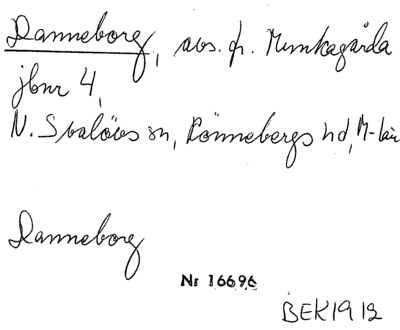 Danneborg, avs. fr. Munkagårda
jbnr 4,
N. Svalövs sn, Rönnebergs hd, M-län
Danneborg
Nr 16696
BEK1912